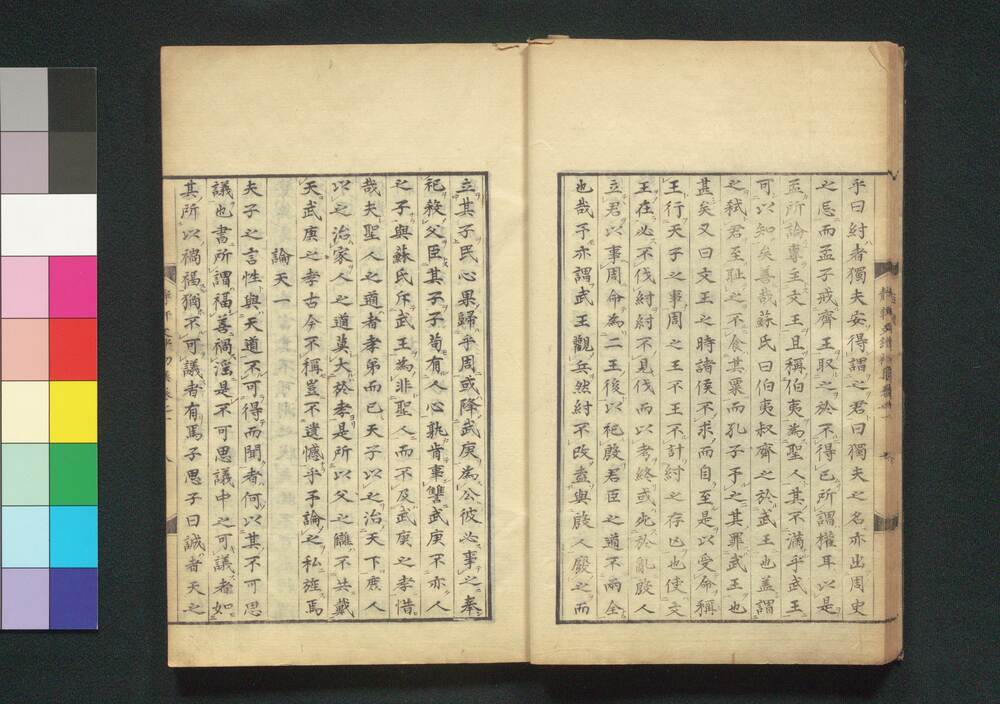 乎曰紂者獨夫安得謂之君曰獨夫之名亦出周史
之忌而孟子戒齊王取之於不得已所謂權耳以是
孟所論專主文王且稱伯夷為聖人其不滿乎武王
可以知矣善哉蘇氏曰伯夷叔齊之於武王也盖謂
之弒君至耻之不食其粟而孔子予之其罪武王也
甚矣又曰文王之時諸侯不求而自至是以受命稱
王行天子之事周之王不王不計紂之存亡也使文
王在必不伐紂紂不見伐而以考終或死於亂殷人
立君以事周命為二王後以祀殷君臣之道不兩全
也哉予亦謂武王觀兵然紂不改盍與殷人廢之而
立其子民心果歸乎周或降武庚為公彼必事之奉
祀殺父臣其子子苟有人心孰肯事讐武庚不亦人
之子與蘇氏斥武王為非聖人而不及武庚之孝惜
哉夫聖人之道者孝弟而已天子以之治天下庶人
以之治家人之道莫大於孝是所以父之讎不共戴
天武庚之孝古今不稱豈不遺憾乎予論之私旌焉
論天一
夫子之言性與天道不可得而聞者何以其不可思
議也書所謂福善禍淫是不可思議中之可議者如
其所以禍福猶不可議者有焉子思子曰誠者天之